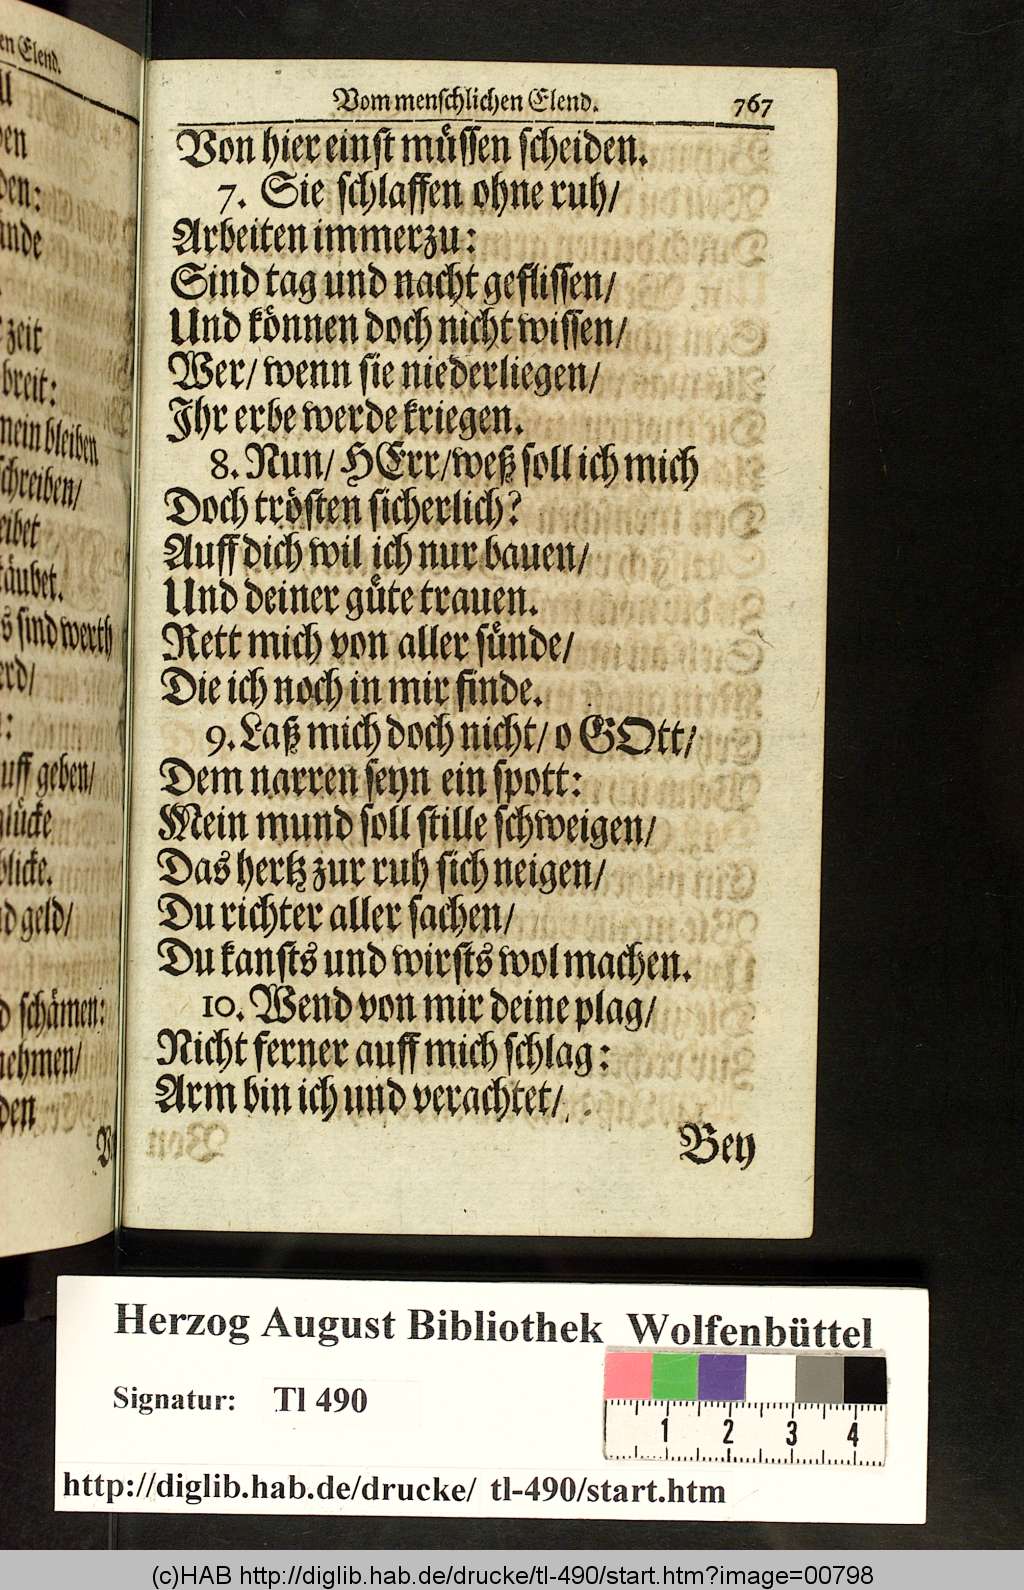 en Elend.
den:
ände
zeit
breit:
mein bleiben
schreiben/
eibet
täubet.
s sind werth
erd/
auff geben/
glücke
blicke.
nd geld/
d schämen:
nehmen/
den
Vom menschlichen Elend. 767
Von hier einst müssen scheiden.
7. Sie schlaffen ohne ruh/
Arbeiten immerzu:
Sind tag und nacht geflissen/
Und können doch nicht wissen/
Wer/ wenn sie niederliegen/
Ihr erbe werde kriegen.
8. Nun/ HErr/ weß soll ich mich
Doch trösten sicherlich?
Auff dich wil ich nur bauen/
Und deiner güte trauen.
Rett mich von aller sünde/
Die ich noch in mir finde.
9. Laß mich doch nicht/ o GOtt/
Dem narren seyn ein spott:
Mein mund soll stille schweigen/
Das hertz zur ruh sich neigen/
Du richter aller sachen/
Du kansts und wirsts wol machen.
10. Wend von mir deine plag/
Nicht ferner auff mich schlag:
Arm bin ich und verachtet/
Bey
Herzog August Bibliothek Wolfenbüttel
Signatur: Tl 490
1 2 3 4
http://diglib.hab.de/drucke/ tl-490/start.htm
(c)HAB http://diglib.hab.de/drucke/tl-490/start.htm?image=00798